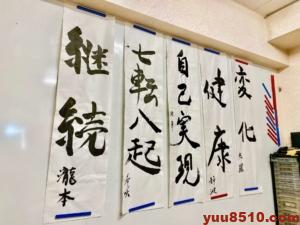 変化
健康
自己実現
七転八起
継続
瀧本
yuu8510.com